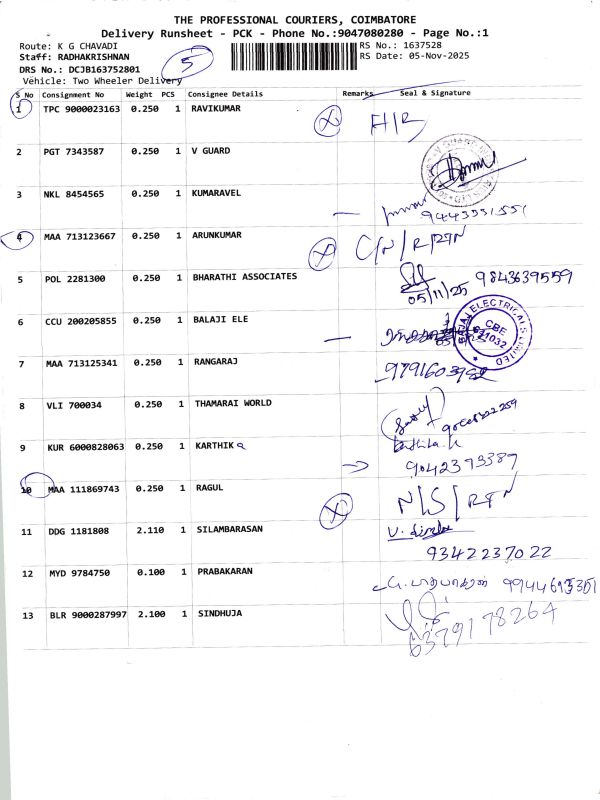 THE PROFESSIONAL COURIERS, COIMBATORE
Delivery Runsheet - PCK - Phone No.:9047080280 - Page No.:1
Route: K G CHAVADI
RS No.: 1637528
Staff: RADHAKRISHNAN
5
RS Date: 05-Nov-2025
DRS No.: DCJB163752801
Vehicle: Two Wheeler Delivery
S No Consignment No Weight PCS Consignee Details Remarks Seal & Signature
1 TPC 9000023163 0.250 1 RAVIKUMAR X H/R
2 PGT 7343587 0.250 1 V GUARD
3 NKL 8454565 0.250 1 KUMARAVEL
4 MAA 713123667 0.250 1 ARUNKUMAR X C/N/RTN
5 POL 2281300 0.250 1 BHARATHI ASSOCIATES 05/11/25 9843639559
6 CCU 200205855 0.250 1 BALAJI ELE
ELECTRICALS LIMITED
CBE
641032
7 MAA 713125341 0.250 1 RANGARAJ
8 VLI 700034 0.250 1 THAMARAI WORLD
9 KUR 6000828063 0.250 1 KARTHIK a
9042393389
10 MAA 111869743 0.250 1 RAGUL X N/S/RTN
11 DDG 1181808 2.110 1 SILAMBARASAN
9342237022
12 MYD 9784750 0.100 1 PRABAKARAN
13 BLR 9000287997 2.100 1 SINDHUJA
6379178264